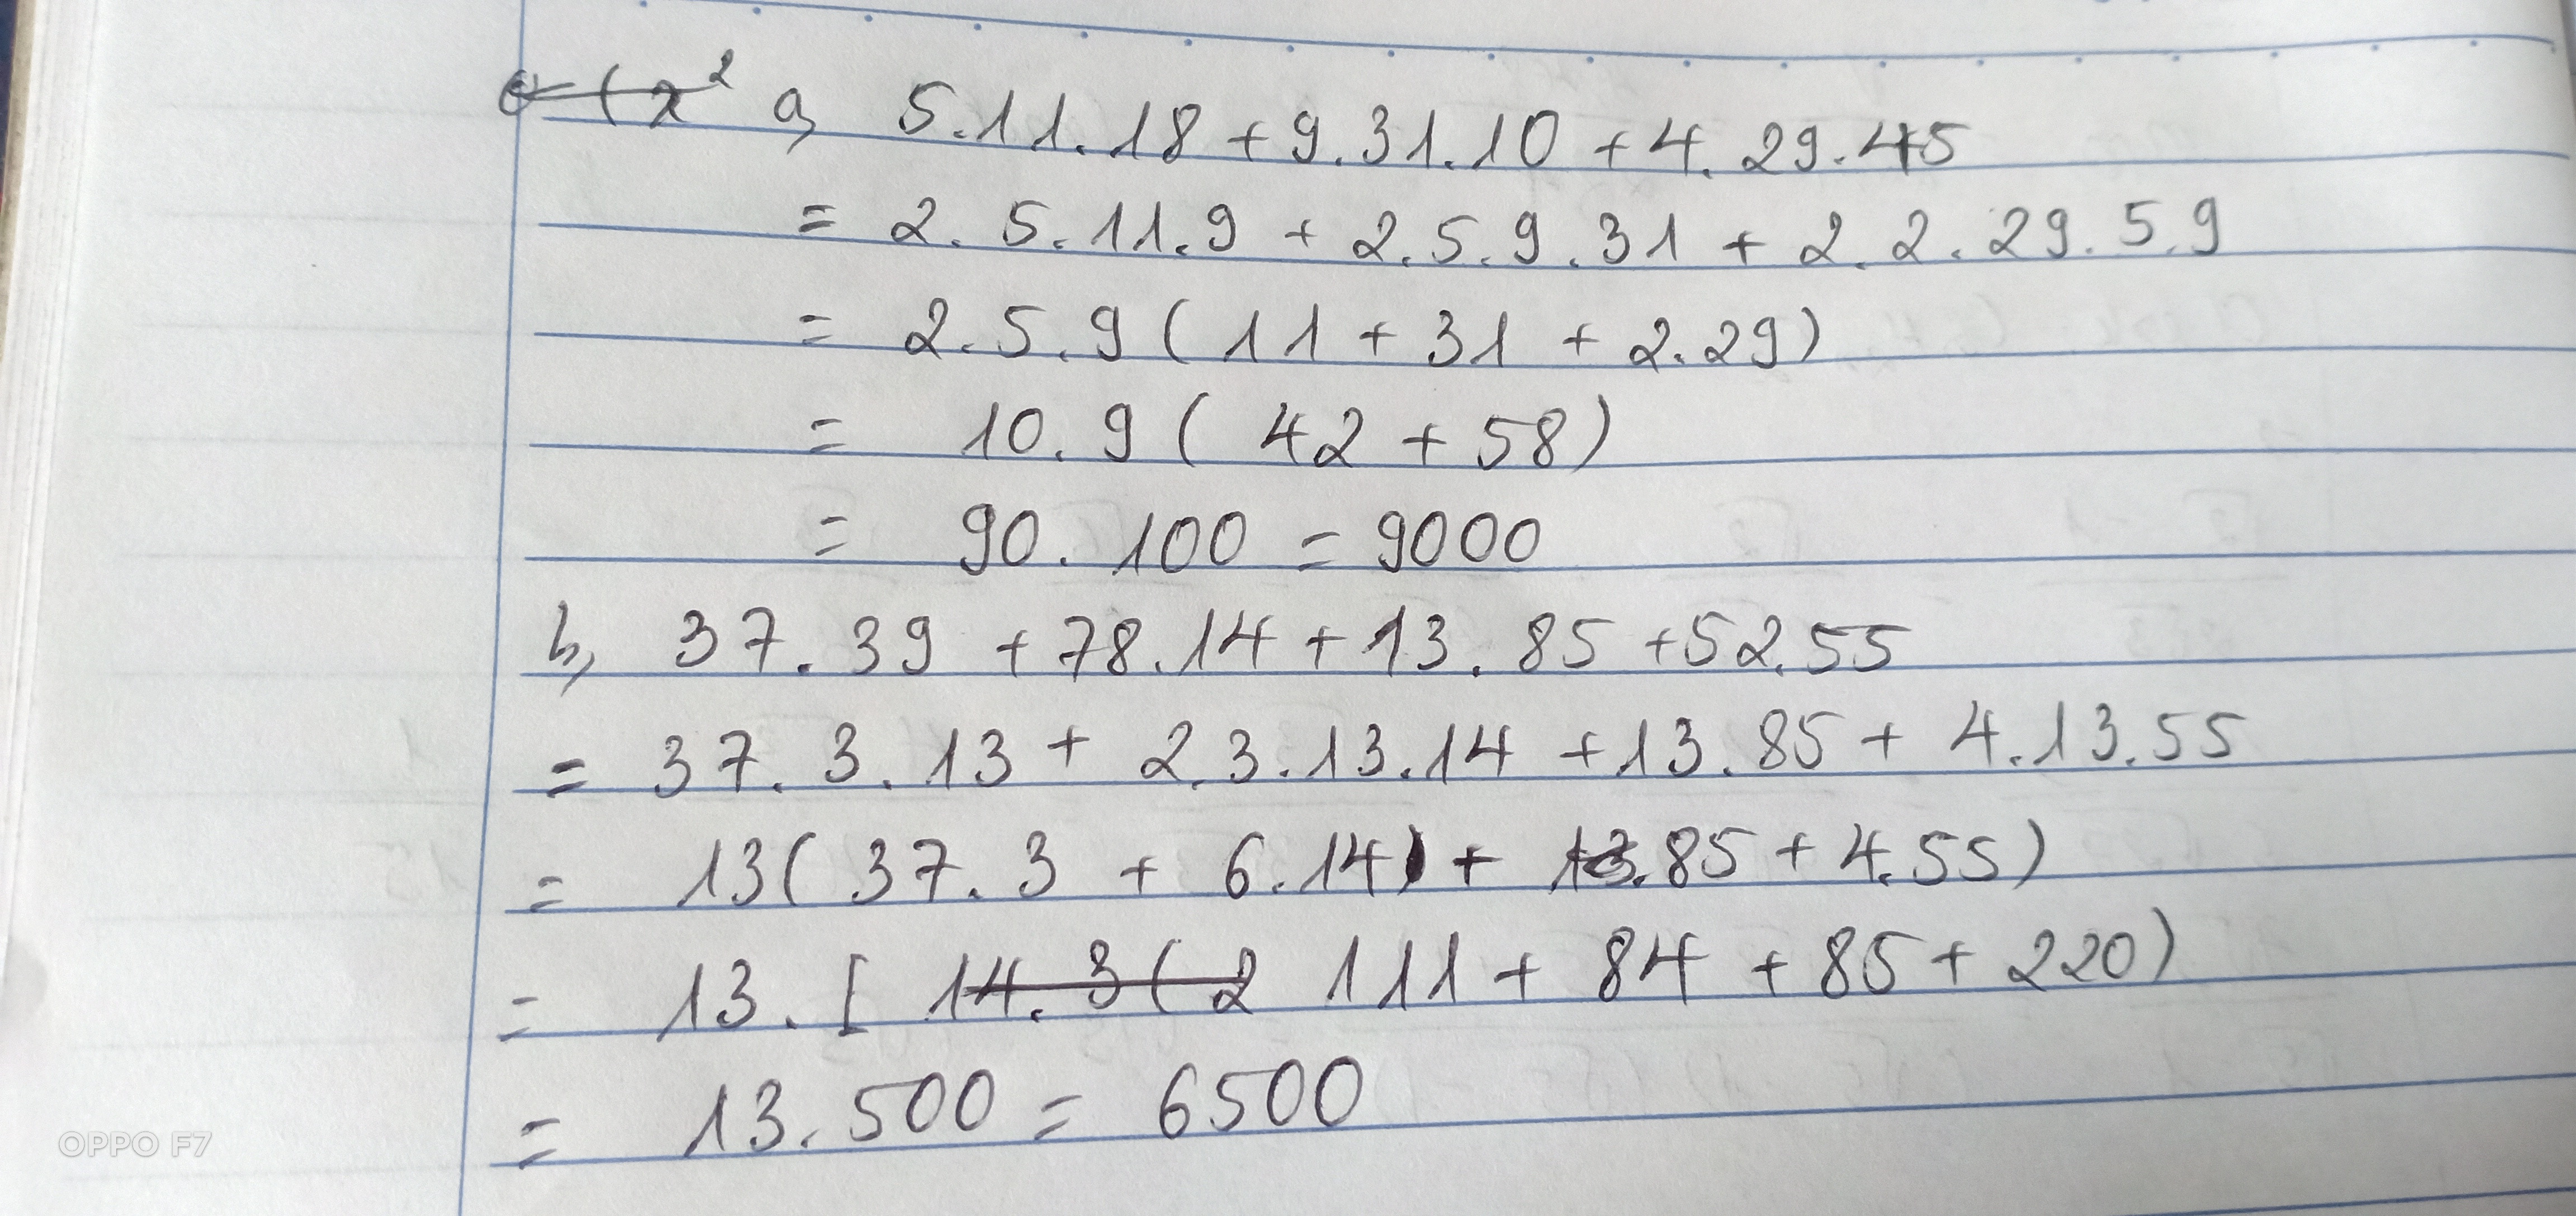 a, 5.11.18 + 9.31.10 + 4.29.45
= 2.5.11.9 + 2.5.9.31 + 2.2.29.5.9
= 2.5.9 ( 11 + 31 + 2.29)
= 10.9 ( 42 + 58)
= 90.100 = 9000
b, 37.39 + 78.14 + 13.85 + 52.55
= 37.3.13 + 2.3.13.14 + 13.85 + 4.13.55
= 13( 37.3 + 6.14 + 85 + 4.55)
= 13. [ 111 + 84 + 85 + 220)
= 13.500 = 6500
OPPO F7